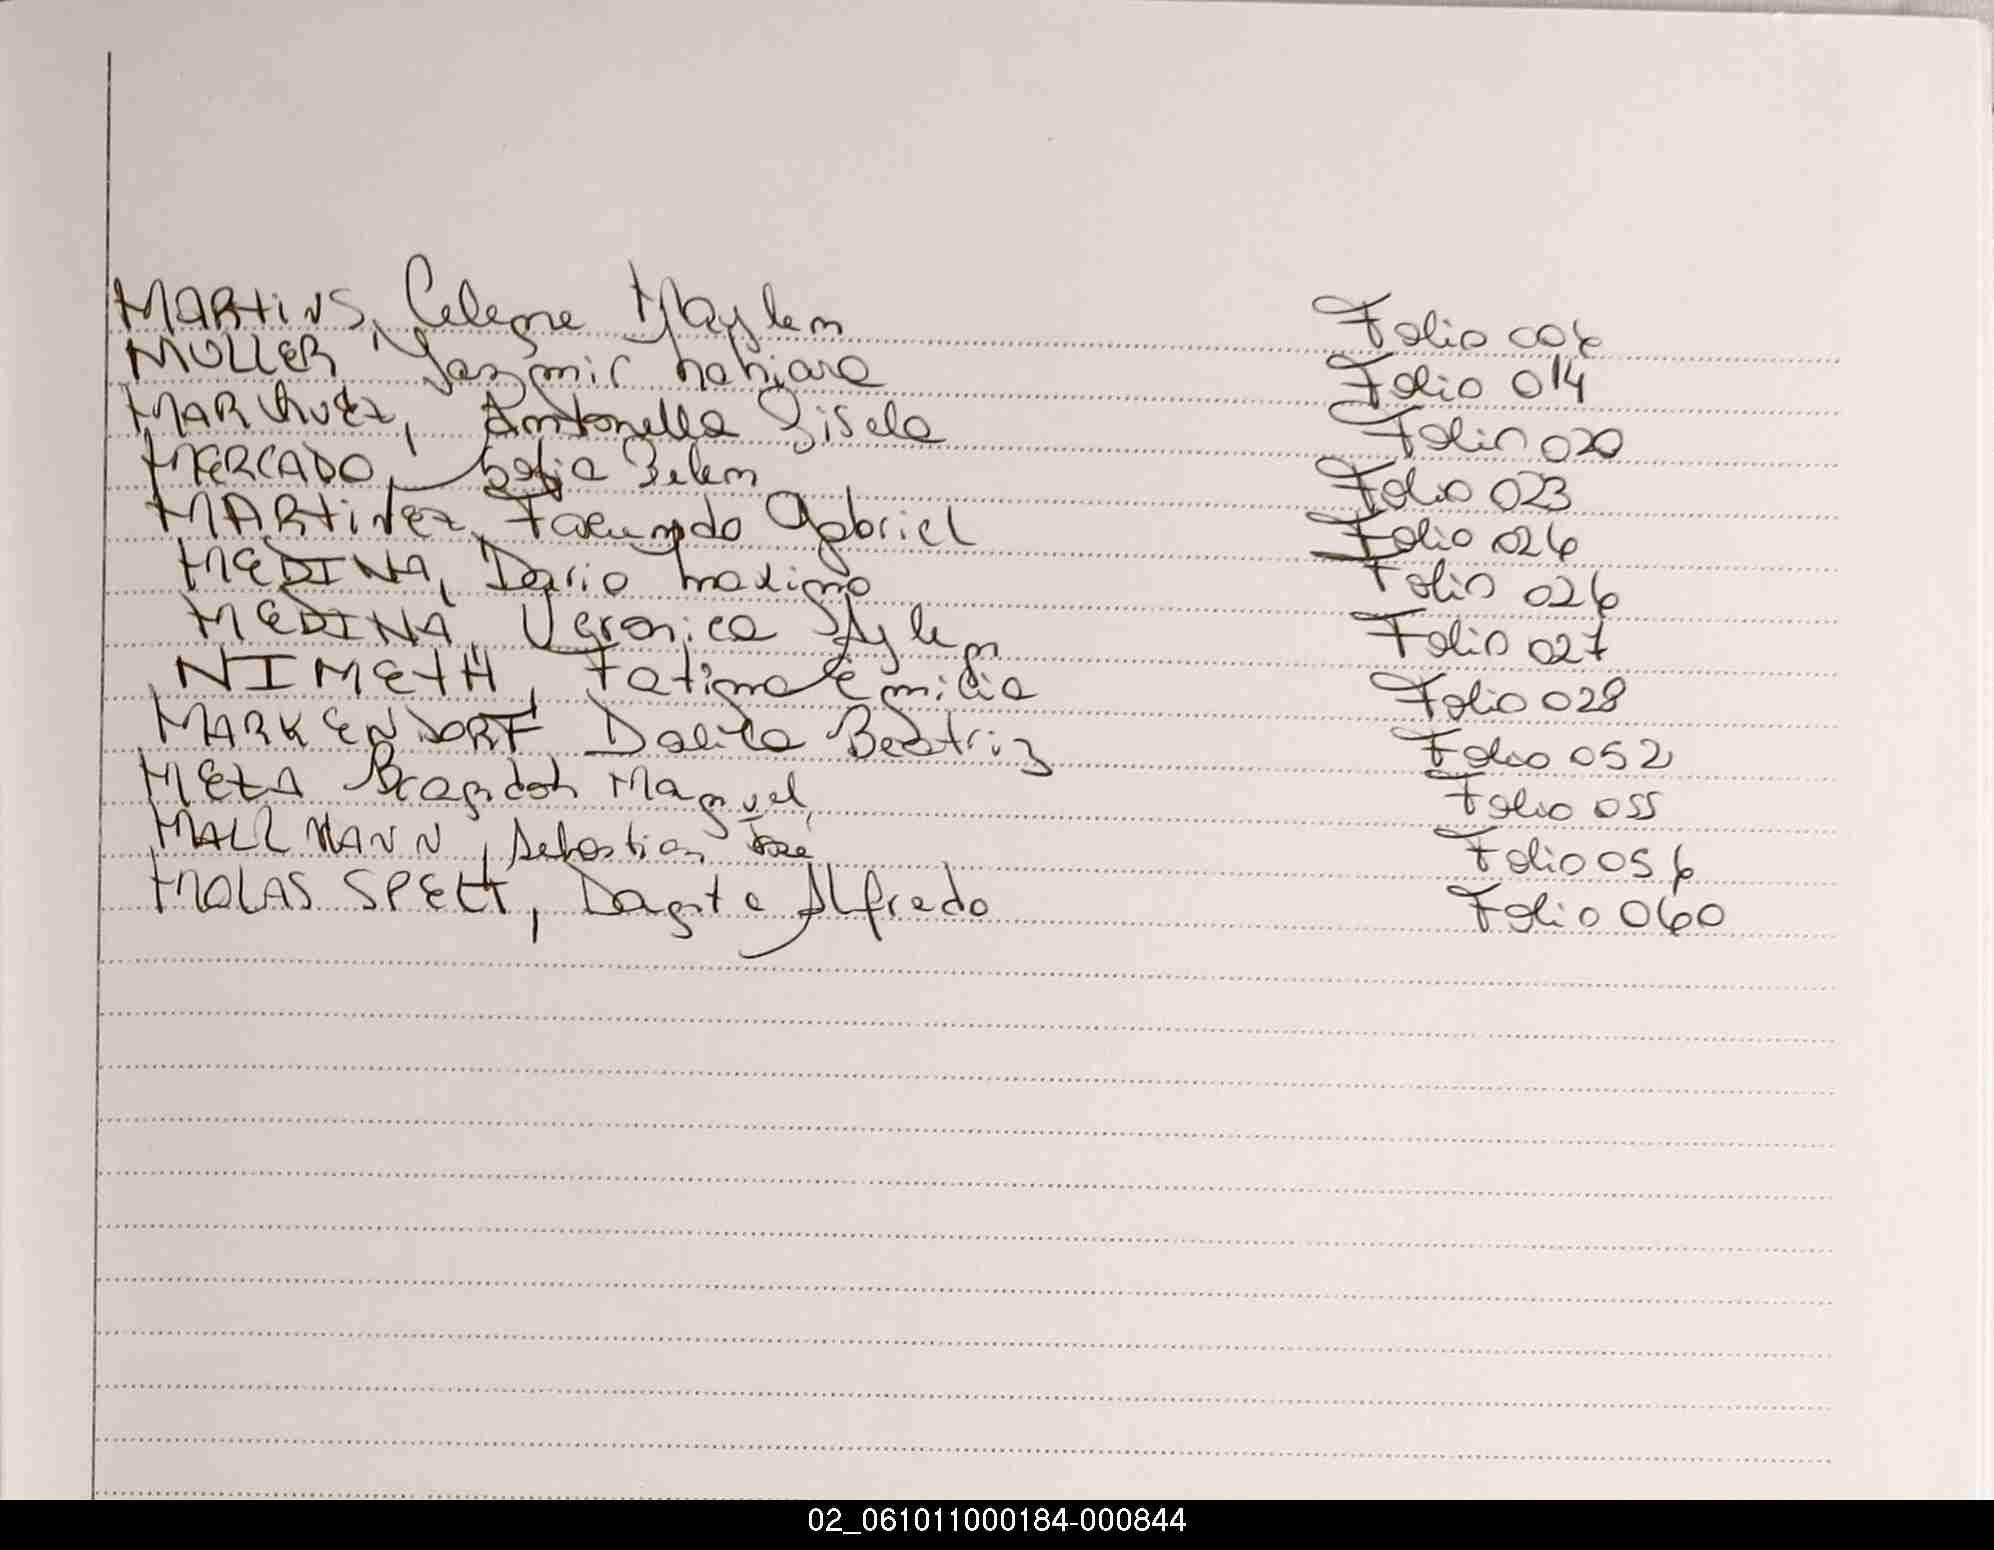 MARTINS, Celeme Maylem Folio 006
MULLER Yazmir nahiara Folio 014
MARQUEZ, Antonella Gisela Folio 020
MERCADO, Sofia Belem Folio 023
MARTINEZ, Facundo Gabriel Folio 026
MEDINA, Dario maximo Folio 026
MEDINA, Veronica Aylem Folio 027
NIMETH, Fatima Emilia Folio 028
MARKENDORF Dalila Beatriz Folio 052
MEZA Brandoh Manuel Folio 055
MALLMANN, Sebastian José Folio 056
MOLAS SPELT, Dante Alfredo Folio 060
02_061011000184-000844